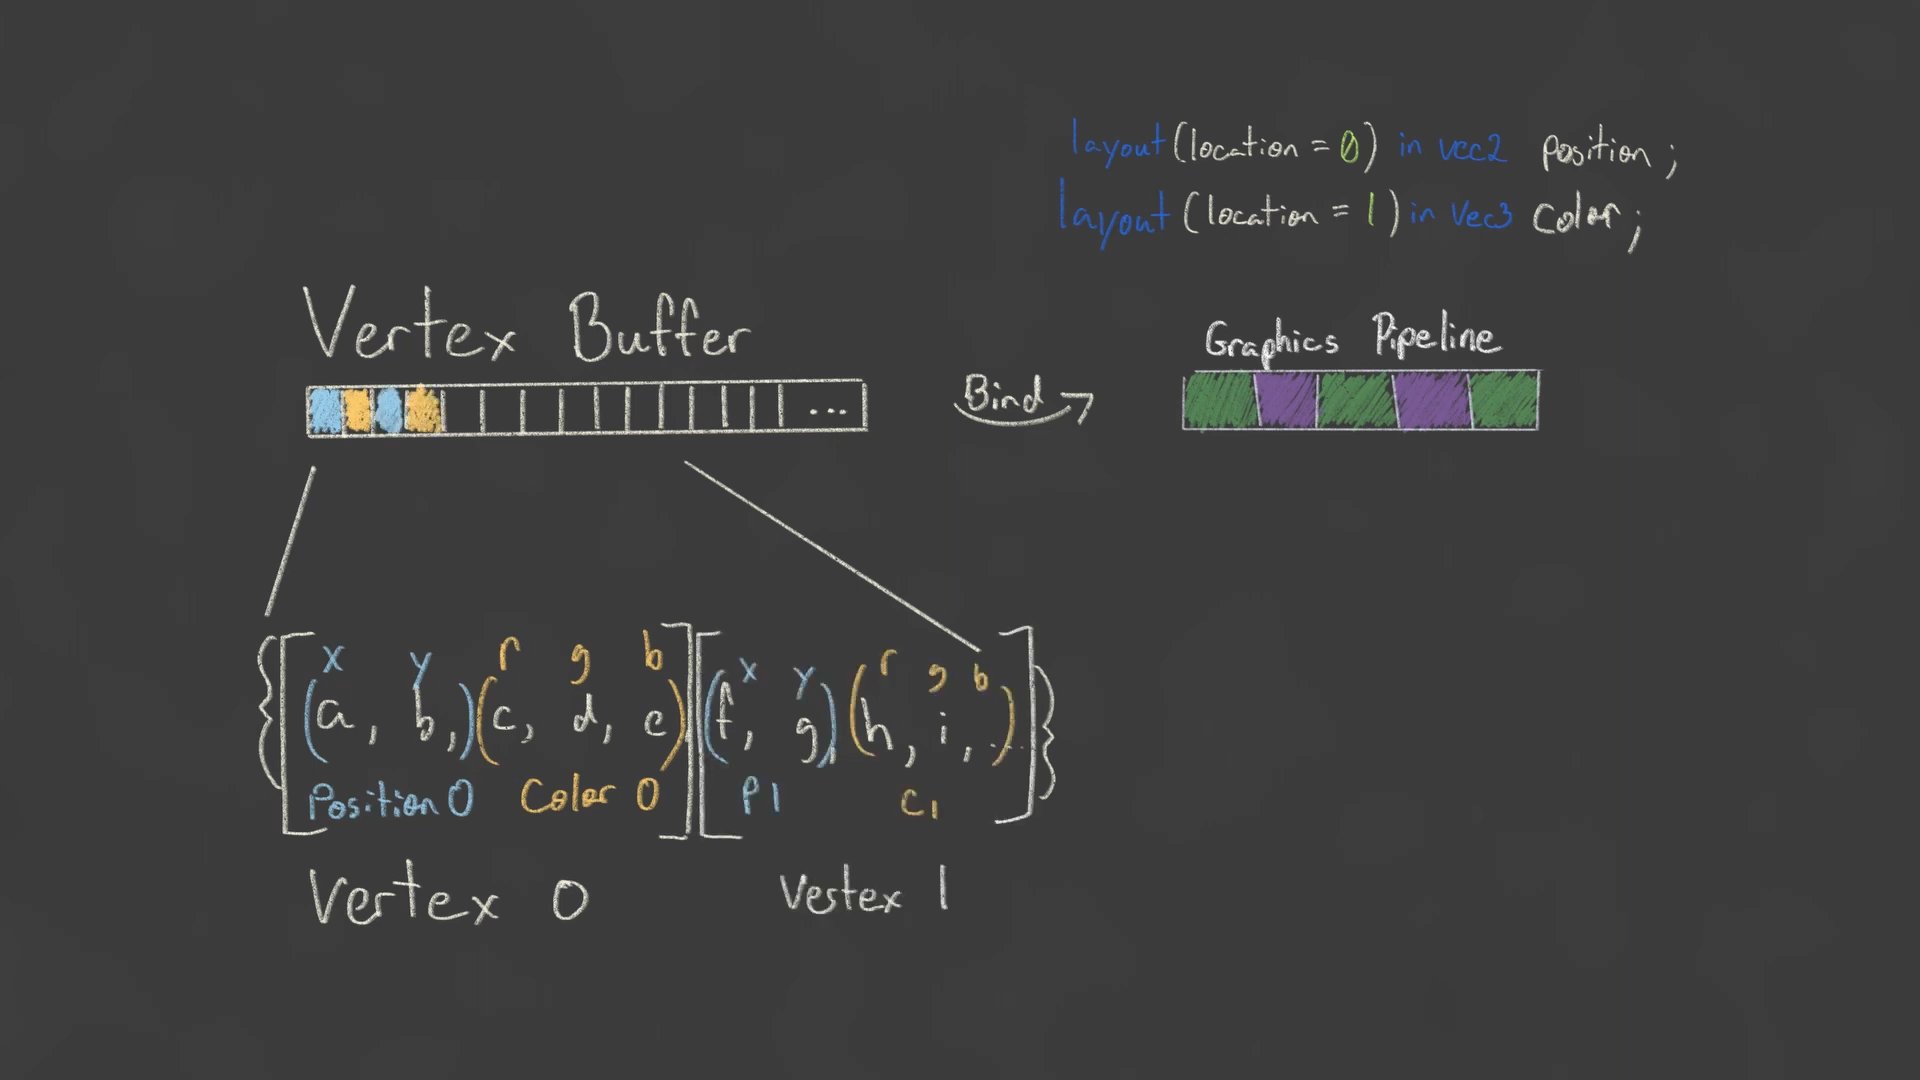 layout (location = 0) in vec2 position;
layout (location = 1) in vec3 color;
Vertex Buffer
Graphics Pipeline
...
Bind
x y r g b x y r g b
{[(a, b,)(c, d, e)][(f, g,)(h, i, ...)]}
Position 0 Color 0 P1 C1
Vertex 0 Vertex 1